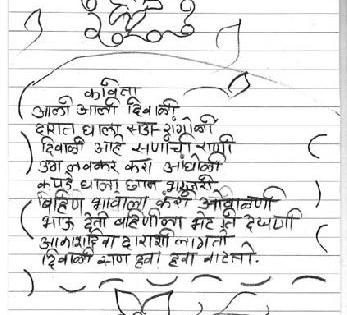 कविता
आली आली दिवाळी
दारात घाला सडा रांगोळी
दिवाळी आहे सणांची राणी
उठा लवकर करा आंघोळी
कपडे घाला छान भरजरी
बहिण भावाला करी ओवाळणी
भाऊ देतो बहिणीला भेट देखणी
आकाशदिवा दाराशी लागतो
दिवाळी सण हवा हवा वाटतो.